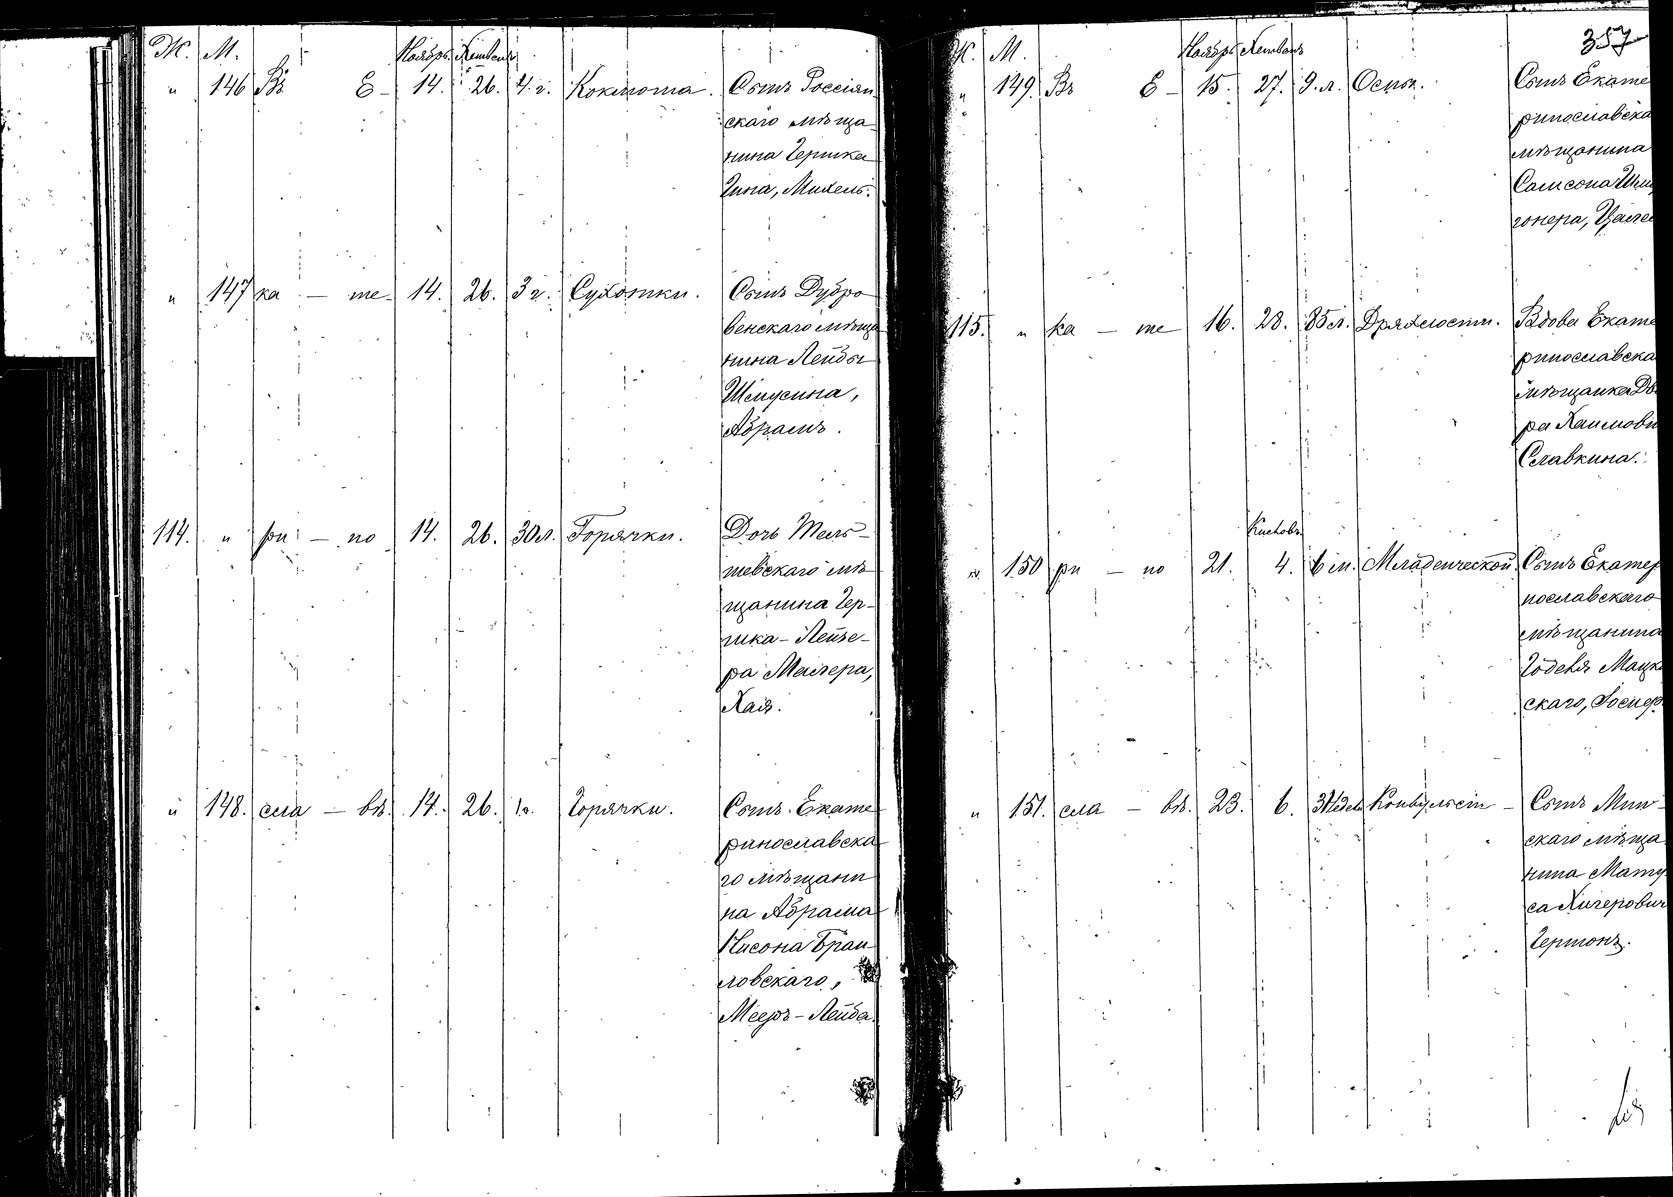 Ж. М. Ноябрь. Хешвенъ
" 146 Въ Е- 14. 26. 4.г. Коклюша. Сынъ Россіян-
скаго мѣща-
нина Гершка
Гина, Михель.
" 147 ка - те- 14. 26. 3 г. Сухотки. Сынъ Дубро-
венскаго мѣща
нина Лейбы
Шмусина,
Абрамъ.
114. " ри - но 14. 26. 30 л. Горячки. Дочь Тель-
шевскаго мѣ-
щанина Гер-
шка-Лейзе-
ра Малера,
Хая.
" 148. сла - вѣ. 14. 26. 1 г. Горячки. Сынъ Екате-
ринославска-
го мѣщани
на Абрама
Нисона Браи-
ловскаго,
Мееръ-Лейба.
357
Ж. М. Ноябрь Хешвенъ
" 149. Въ Е- 15. 27. 9.л. Оспы. Сынъ Екате
ринославска
мѣщанина
Самсона
гонера,
115. " ка - те 16. 28. 85 л. Дряхлости. Вдова Екате
ринославска
мѣщанка Дв
ра Хаимовн
Славкина.
Кислевъ.
" 150 ри - но 21. 4. 6 м. Младенческой. Сынъ Екатер
нославскаго
мѣщанина
Годеля Мацко
скаго, Іосиф
" 151. сла - вѣ. 23. 6. 3 Недѣл Конвульсіи - Сынъ Мин-
скаго мѣща
нина Мату
са Хичерович
Гершонъ.